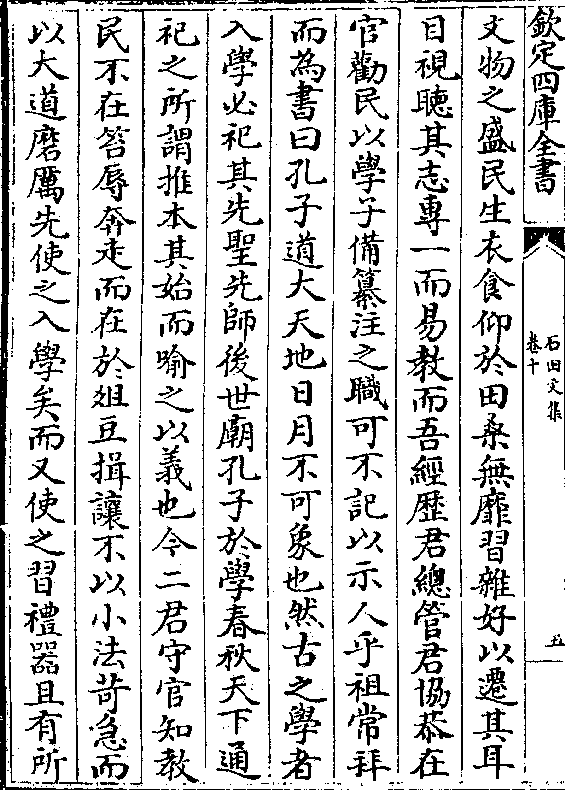 欽定四庫全書
石田文集
卷十
五
文物之盛民生衣食仰於田桑無靡習雜好以遷其耳
目視聽其志專一而易教而吾經歴君總管君協恭在
官勸民以學子備纂注之職可不記以示人乎祖常拜
而為書曰孔子道大天地日月不可象也然古之學者
入學必祀其先聖先師後世廟孔子於學春秋天下通
祀之所謂推本其始而喻之以義也今二君守官知教
民不在笞辱奔走而在於俎豆揖讓不以小法苛急而
以大道磨厲先使之入學矣而又使之習禮器且有所